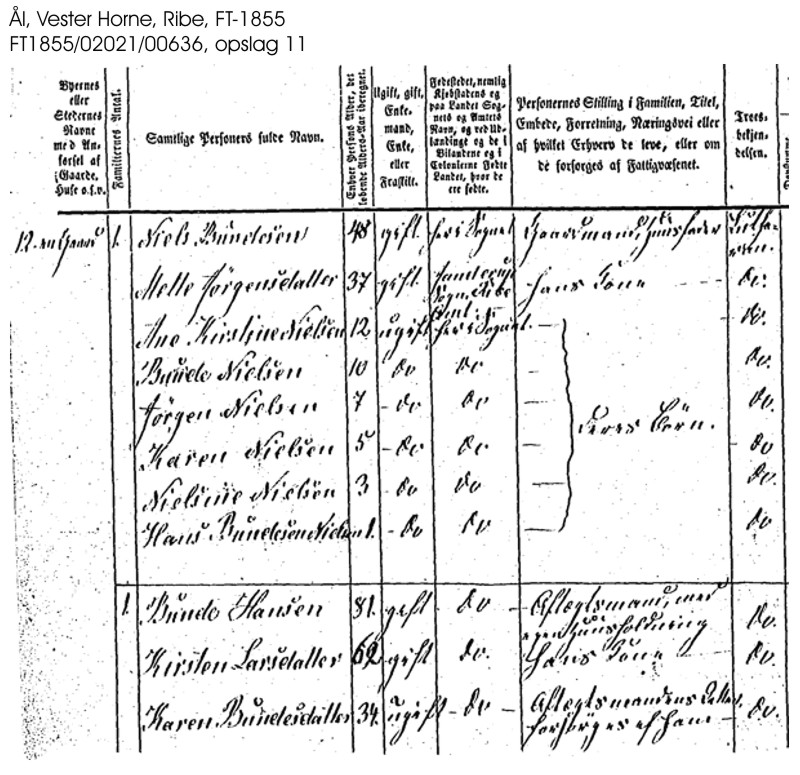 Ål, Vester Horne, Ribe, FT-1855
FT1855/02021/00636, opslag 11
Byernes eller Stedernes Navne med Anførsel af Gaarde, Huse o.s.v.
Familiernes Antal.
Samtlige Personers fulde Navn.
Enhver Persons Alder, det løbende Alders-Aar iberegnet.
Ugift, gift, Enkemand, Enke, eller Fraskilt.
Fødestedet, nemlig Kjøbstadens og paa Landet Sognets og Amtets Navn, og ved Udlændinge og de i Bilandene og i Colonierne Fødte Landet, hvor de ere fødte.
Personernes Stilling i Familien, Titel, Embede, Forretning, Næringsvei eller af hvilket Erhverv de leve, eller om de forsørges af Fattigvæsenet.
Troesbekjendelsen.
12. en Gaard 1. Niels Bundesen 48 gift her i Sognet Gaardmand, Huusfader Lutheran.
Mette Jörgensdatter 37 gift Sogn, Ribe Amt hans Kone do.
Ane Kirstine Nielsen 12 ugift her i Sognet. — do.
Bunde Nielsen 10 do do — do.
Jörgen Nielsen 7 - do do — do.
deres Börn.
Karen Nielsen 5 - do do — do
Nielsine Nielsen 3 - do do — do.
Hans Bundesen Nielsen 1. - do do — do
1. Bunde Hansen 81. gift - do - Aftægtsmand, med egen Huusholdning do.
Kirsten Larsdatter 62 gift do. hans Kone do.
Karen Bundesdatter 34. ugift - do - Aftægtsmandens Datter, forsörges af ham - do.